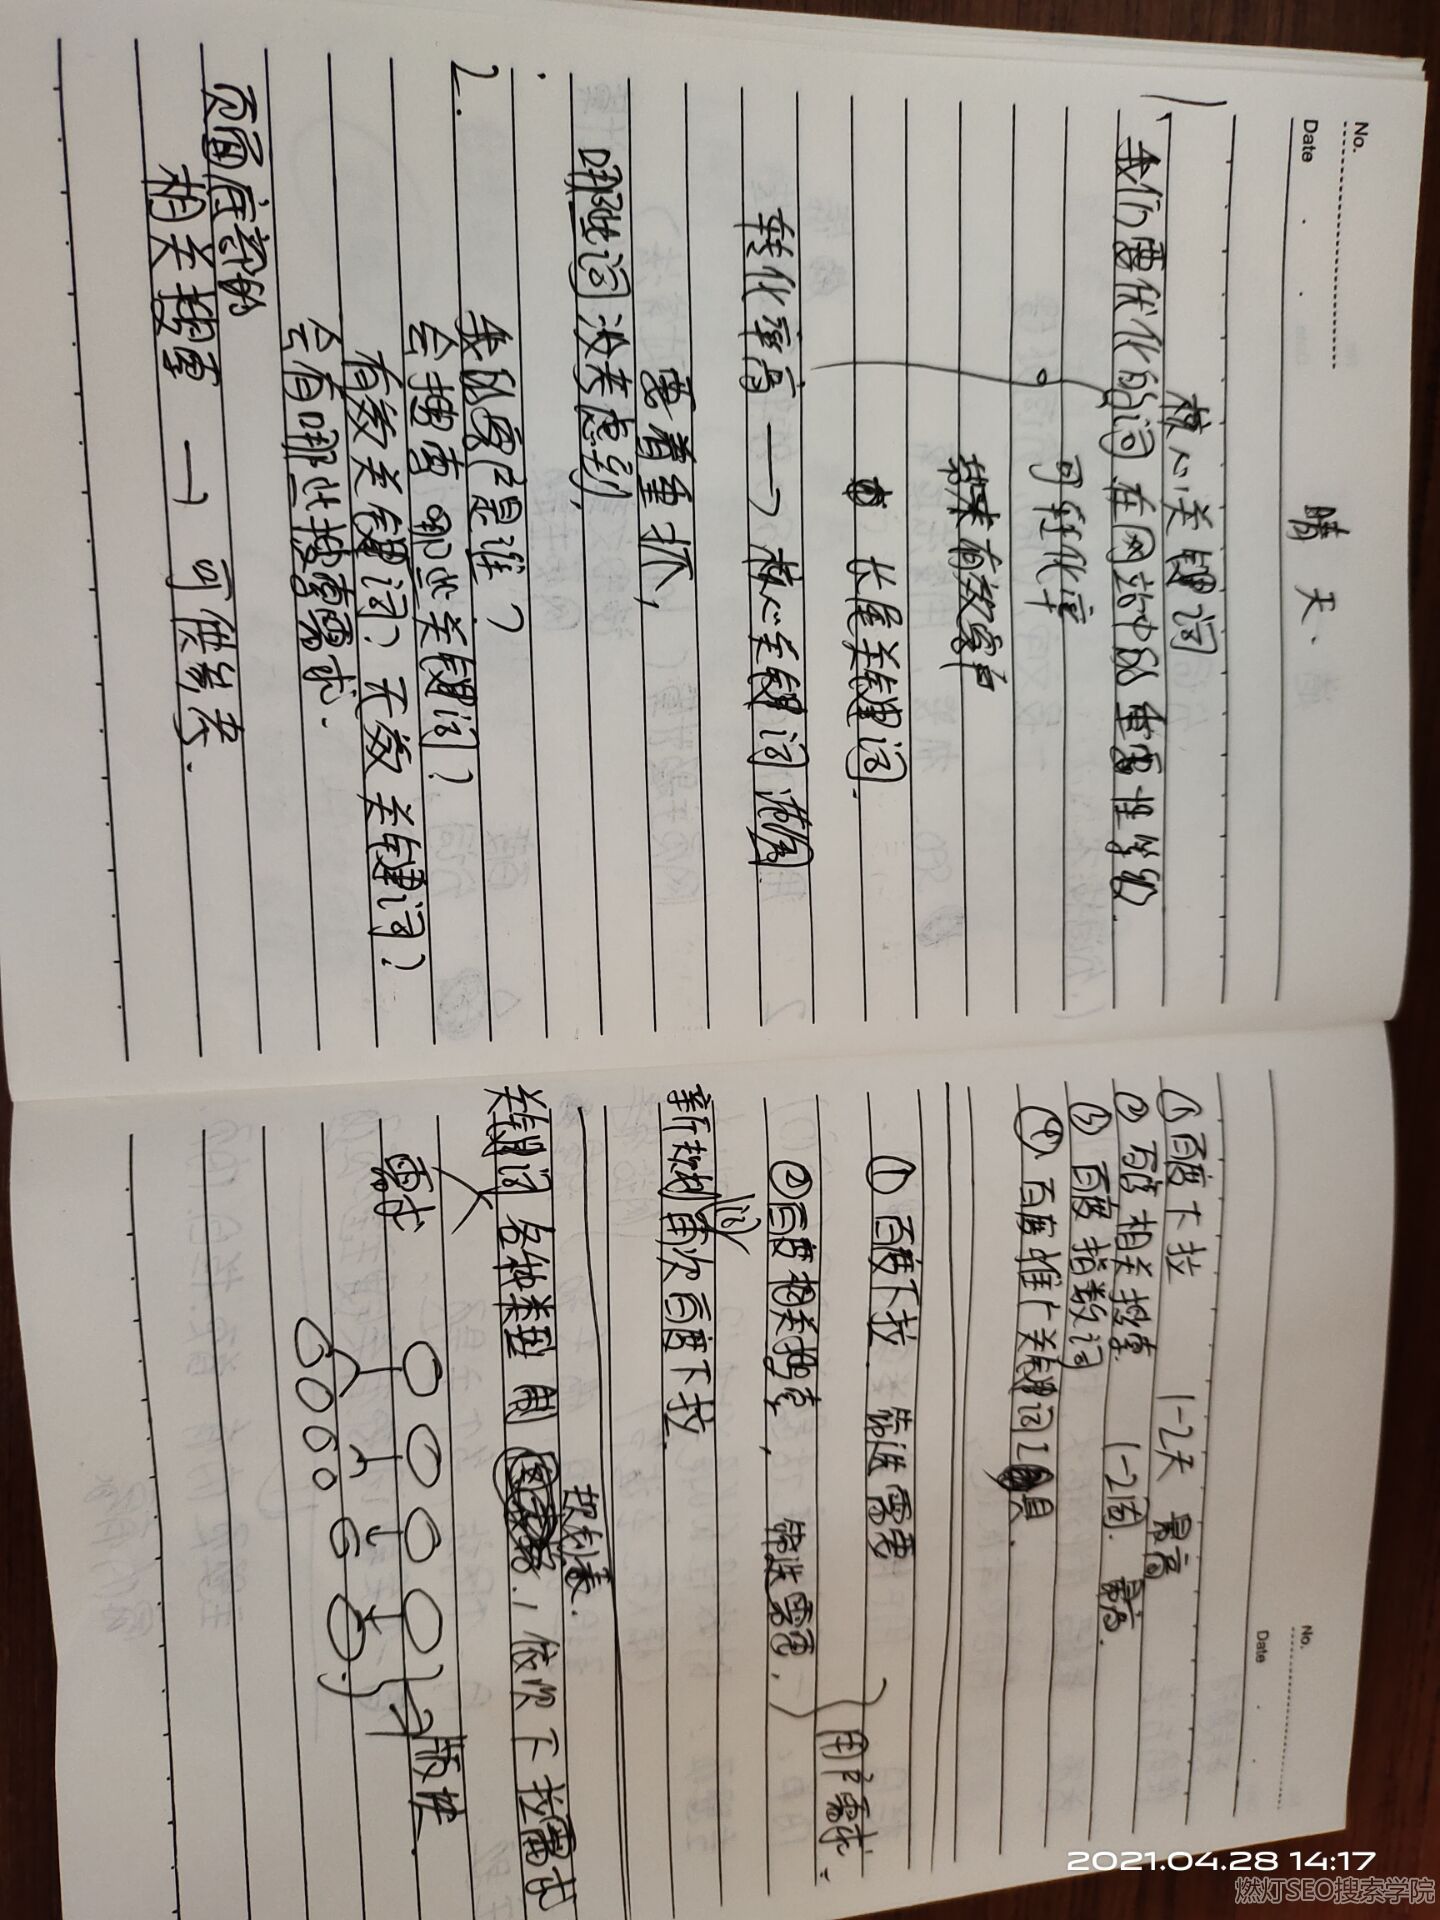 No.
Date
晴 天.
1、 核心关键词
我们要优化的词 在网站中的重要性等级
可转化率
带来有效客户
长尾关键词.
转化率高 → 核心关键词
需着重抓,
哪些词没考虑到,
2. 我的客户是谁?
会搜索哪些关键词?
有效关键词? 无效关键词?
会有哪些搜索需求.
页面底部的
相关搜索 → 可供参考.
No.
Date
① 百度下拉 1-2天 最高
② 百度相关搜索 1-2周. 最高.
③ 百度指数词
④ 百度推广关键词工具.
① 百度下拉 筛选需要
② 百度相关搜索, 筛选需要.
用户需求.
新起的词 再次百度下拉.
规划表.
关键词各种类型 制, 依次下拉需求
需求
版块.
2021.04.28 14:17
燃灯SEO搜索学院